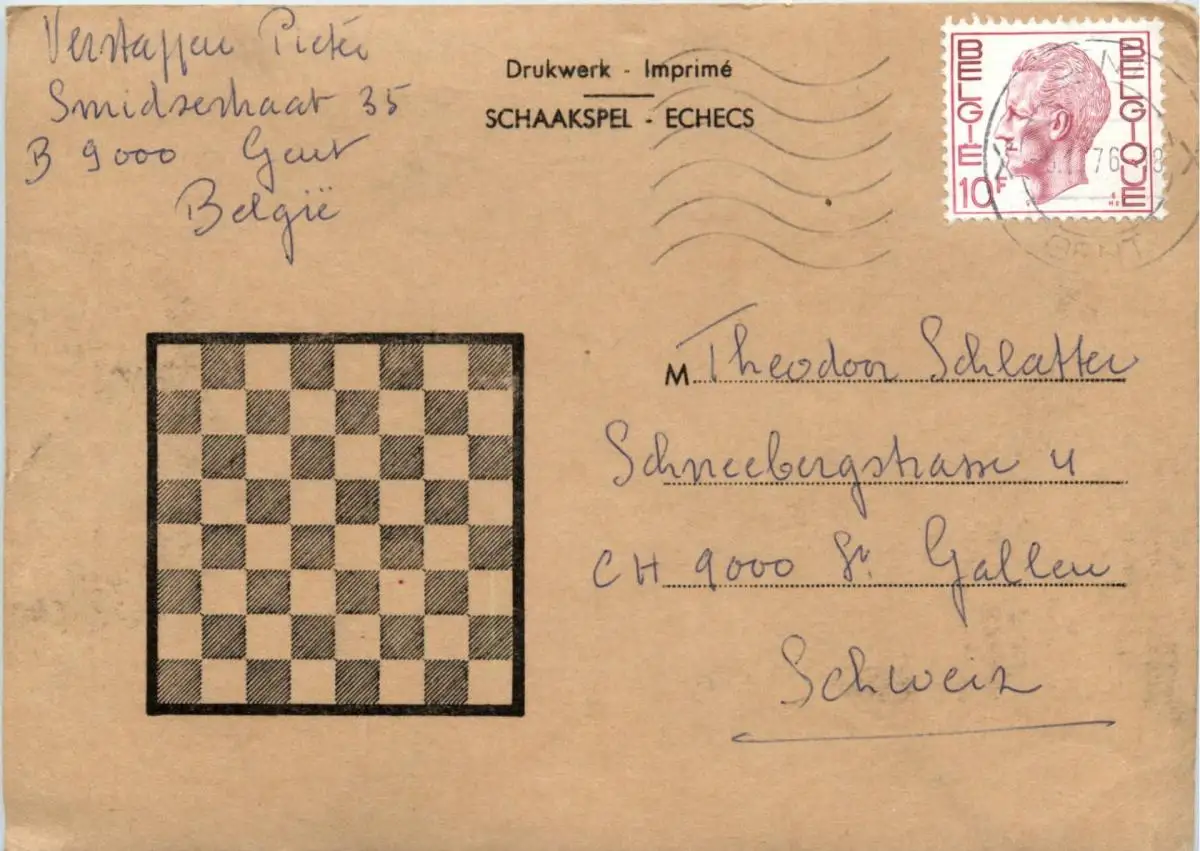 Verstappen Pieter
Smidsestraat 35
B 9000 Gent
België
Drukwerk - Imprimé
SCHAAKSPEL - ECHECS
BELGIE
BELGIQUE
10F
76
GENT
M Theodoor Schlatter
Schneebergstrasse 4
CH 9000 St. Gallen
Schweiz